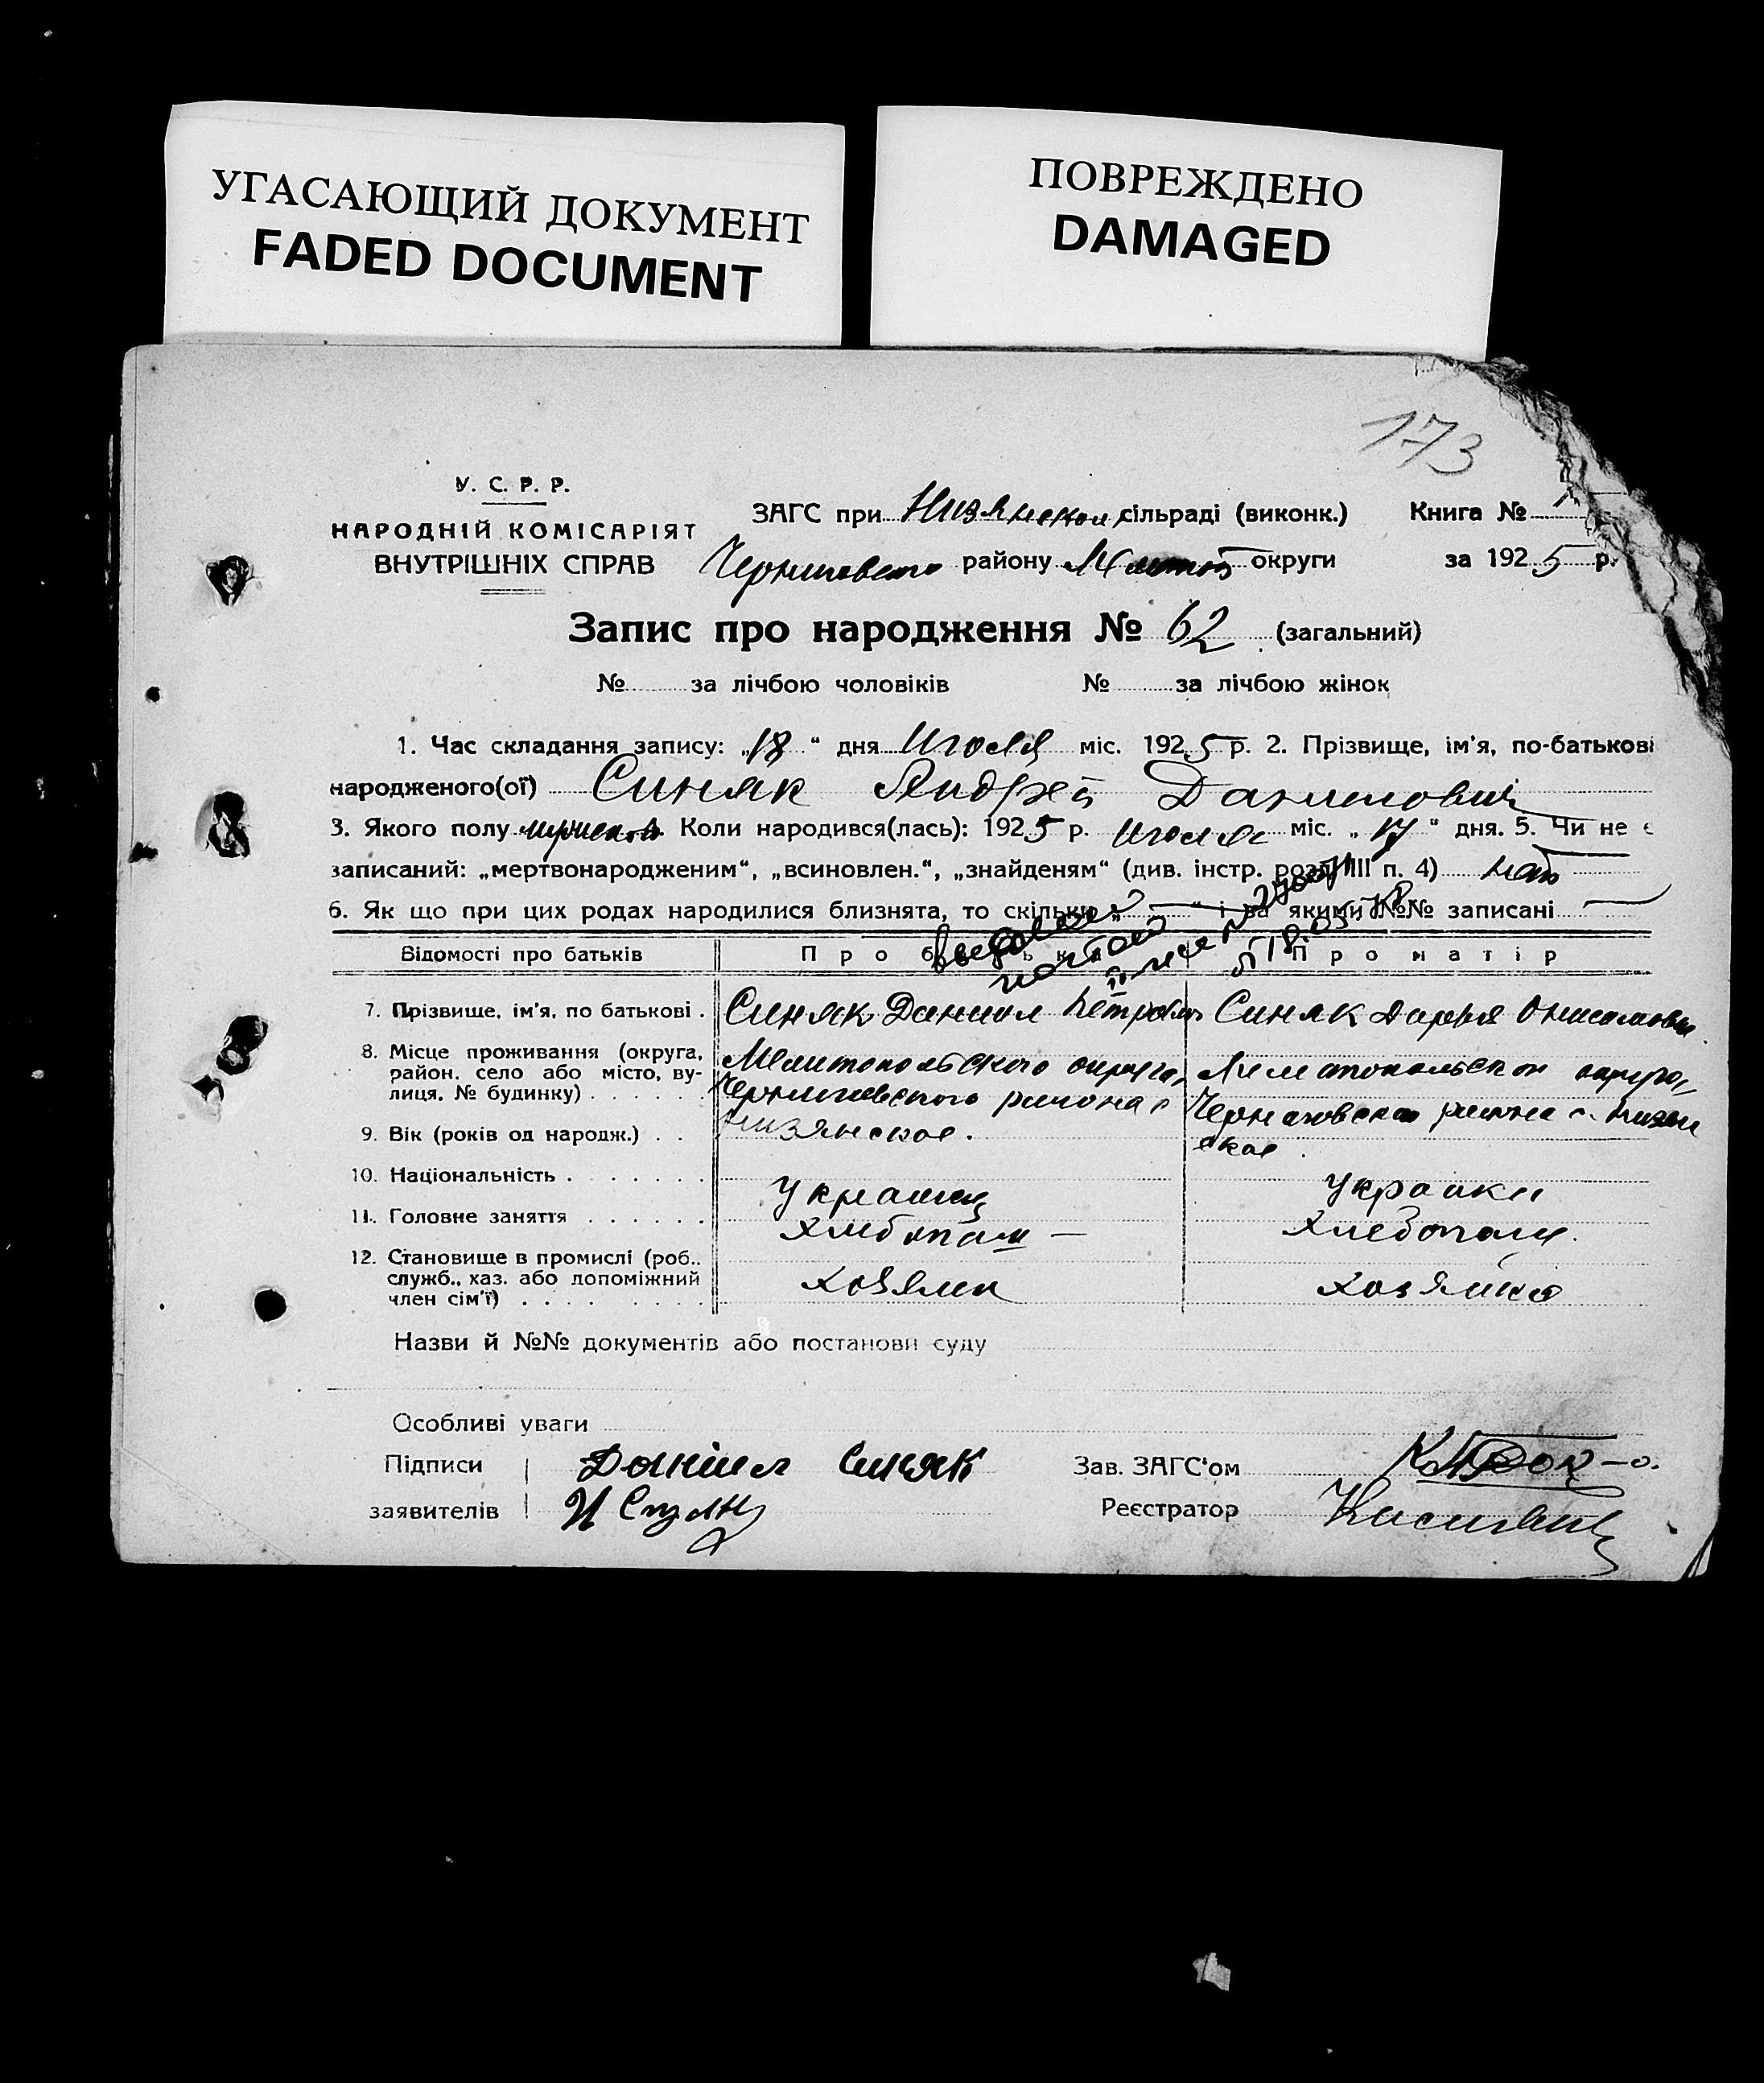 УГАСАЮЩИЙ ДОКУМЕНТ
FADED DOCUMENT
ПОВРЕЖДЕНО
DAMAGED
173
У. С. Р. Р.
НАРОДНІЙ КОМІСАРІЯТ
ВНУТРІШНІХ СПРАВ
ЗАГС при Низянском сільраді (виконк.) Книга №
Черниговского району Мелитоп округи за 1925 р.
Запис про народження № 62 (загальний)
№ за лічбою чоловіків № за лічбою жінок
1. Час складання запису: „18“ дня Июля міс. 1925 р. 2. Прізвище, ім'я, по-батькові
народженого(ої) Синяк Андрей Данилович
3. Якого полу Коли народився(лась): 1925 р. Июля міс. „17“ дня. 5. Чи не є
записаний: „мертвонародженим“, „всиновлен.“, „знайденям“ (див. інстр. розд. III п. 4) нет
6. Як що при цих родах народилися близнята, то скільки „—“ і за якими №№ записані —
Відомості про батьків Про батька Про матір
7. Прізвище, ім'я, по батькові . Синяк Даниил Петрович Синяк Дарья Онисимовна
8. Місце проживання (округа, район, село або місто, вулиця, № будинку) . . . . . .
Мелитопольского округа, Мелитопольского округа,
Черниговского района с Черниговского района с. Низян
Низянское. ское.
9. Вік (років од народж.) . .
10. Національність . . . . . . . Украинец Украинка
11. Головне заняття . . . . . . Хлебопаш — Хлебопаш.
12. Становище в промислі (роб., служб., хаз. або допоміжний член сім'ї) . . . . . . . . Хозяин Хозяйка
Назви й №№ документів або постанови суду
Особливі уваги
Підписи Даниил Синяк Зав. ЗАГС'ом
заявителів Реєстратор